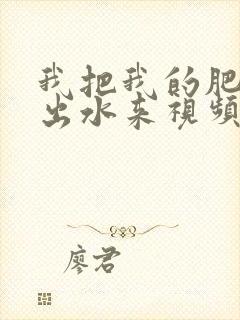 我把我的肥
出水来視頻
廖君